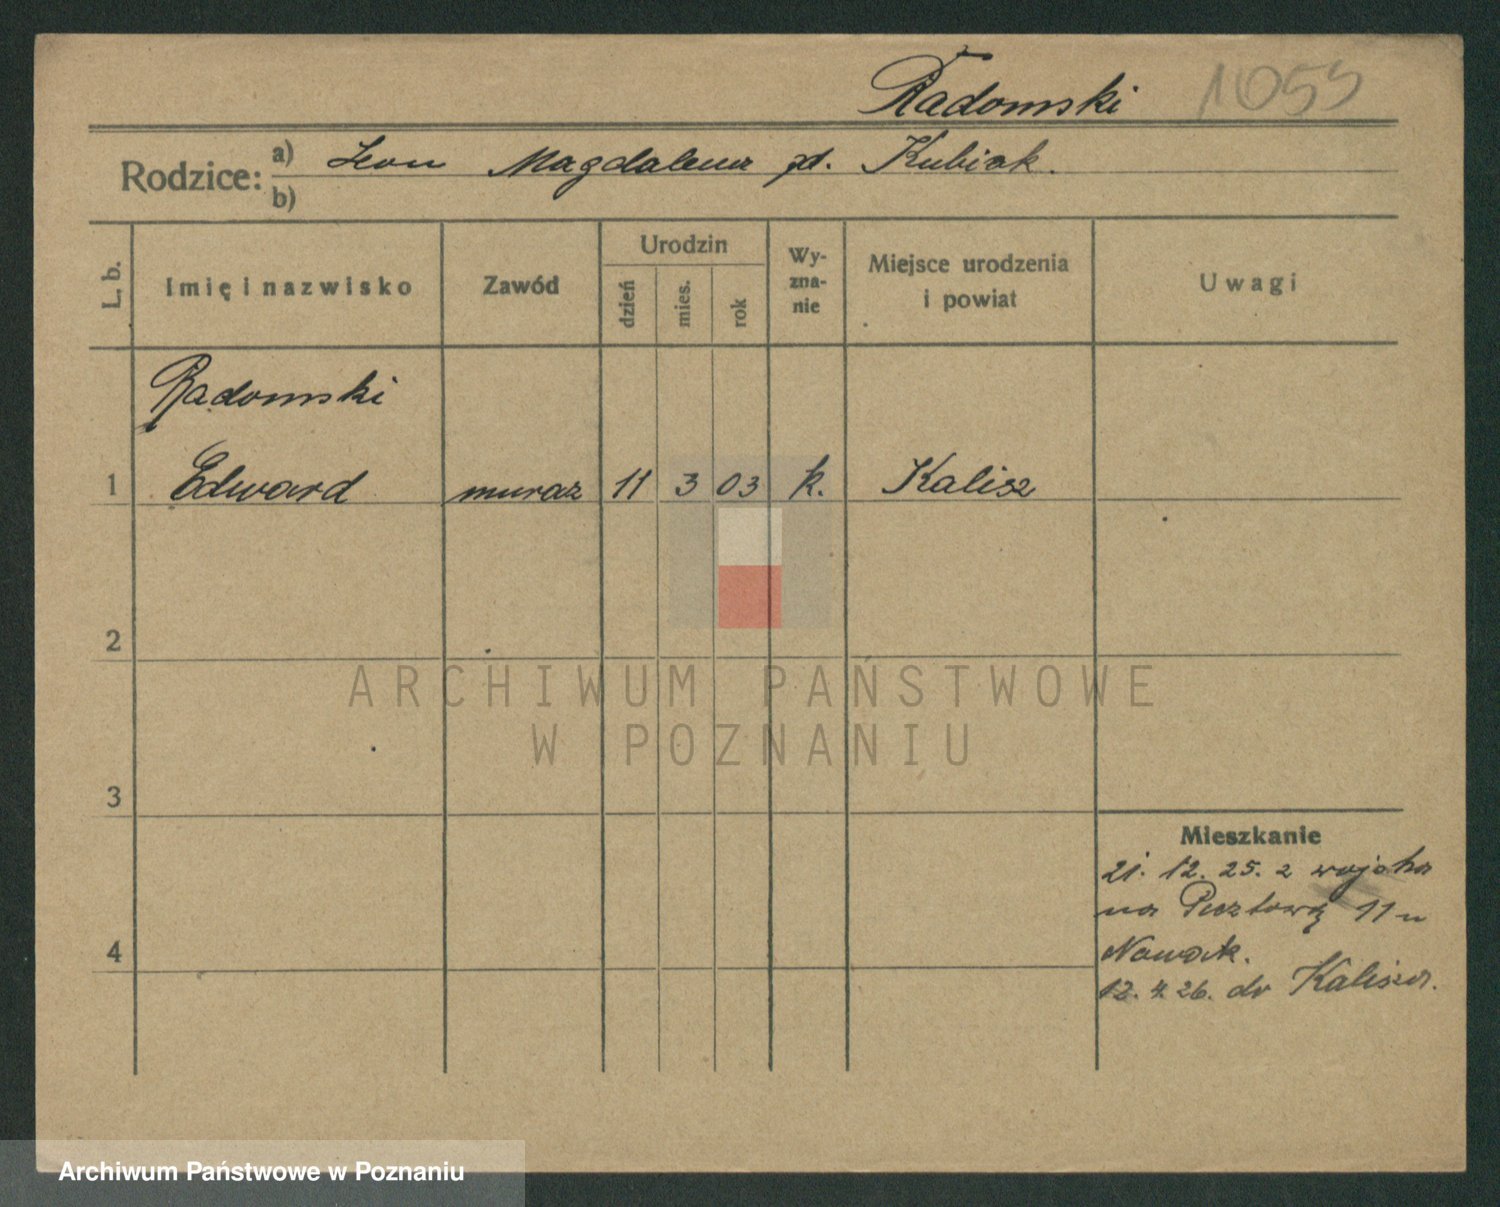 Radomski 1055
Rodzice: a) Leon Magdalena zd. Kubiak.
b)
L. b. Imię i nazwisko Zawód Urodzin dzień mies. rok Wyznanie Miejsce urodzenia i powiat Uwagi
Radomski
1 Edward murarz 11 3 03 k. Kalisz
2
ARCHIWUM PAŃSTWOWE
W POZNANIU
3
Mieszkanie
21. 12. 25. z wojska
na Pocztową 11 u
4 Nowak.
12. 4. 26. do Kalisza.
Archiwum Państwowe w Poznaniu